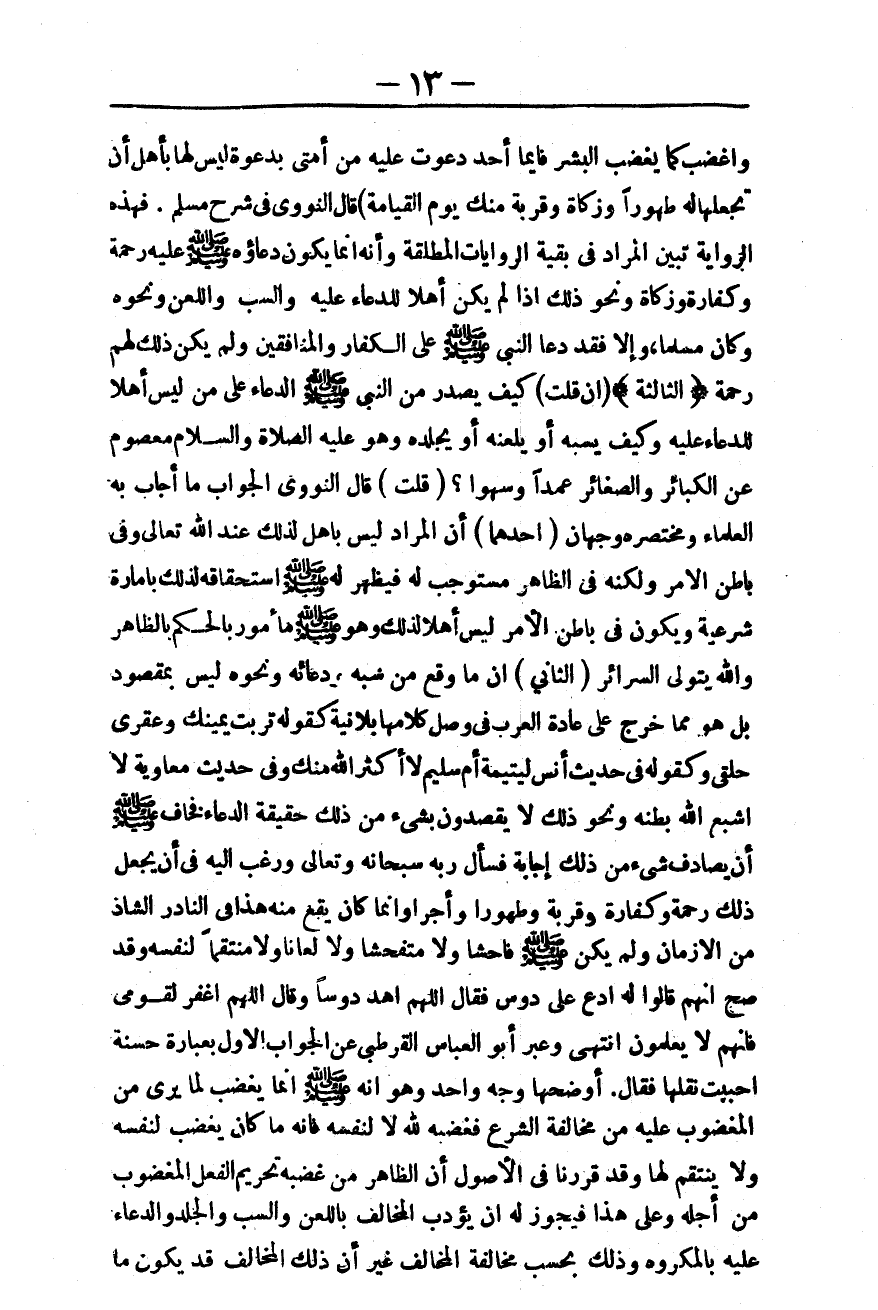 — ١٣ —
واغضب كما يغضب البشر فايما أحد دعوت عليه من أمتى بدعوة ليس لها بأهل أن
تجعلها له طهوراً وزكاة وقربة منك يوم القيامة) قال النووى فى شرح مسلم . فهذه
الرواية تبين المراد فى بقية الروايات المطلقة وأنه انما يكون دعاؤه ﷺ عليه رحمة
وكفارة وزكاة ونحو ذلك اذا لم يكن أهلا للدعاء عليه والسب واللعن ونحوه
وكان مسلما، وإلا فقد دعا النبي ﷺ على الكفار والمنافقين ولم يكن ذلك لهم
رحمة ﴿ الثالثة ﴾ (ان قلت) كيف يصدر من النبي ﷺ الدعاء على من ليس أهلا
للدعاء عليه وكيف يسبه أو يلعنه أو يجلده وهو عليه الصلاة والسلام معصوم
عن الكبائر والصغائر عمداً وسهوا ؟ ( قلت ) قال النووى الجواب ما أجاب به
العلماء ومختصره وجهان ( احدهما ) أن المراد ليس باهل لذلك عند الله تعالى وفى
باطن الامر ولكنه فى الظاهر مستوجب له فيظهر له ﷺ استحقاقه لذلك بامارة
شرعية ويكون فى باطن الأمر ليس أهلا لذلك وهو ﷺ مأمور بالحكم بالظاهر
والله يتولى السرائر ( الثاني ) ان ما وقع من سبه ودعائه ونحوه ليس بمقصود
بل هو مما خرج على عادة العرب فى وصل كلامها بلا نية كقوله تربت يمينك وعقرى
حلقى وكقوله فى حديث أنس ليتيمة أم سليم لا أكثر الله منك وفى حديث معاوية لا
اشبع الله بطنه ونحو ذلك لا يقصدون بشىء من ذلك حقيقة الدعاء فخاف ﷺ
أن يصادف شىء من ذلك إجابة فسأل ربه سبحانه وتعالى ورغب اليه فى أن يجعل
ذلك رحمة وكفارة وقربة وطهورا وأجرا وانما كان يقع منه هذا فى النادر الشاذ
من الازمان ولم يكن ﷺ فاحشا ولا متفحشا ولا لعانا ولا منتقماً لنفسه وقد
صح انهم قالوا له ادع على دوس فقال اللهم اهد دوساً وقال اللهم اغفر لقومى
فانهم لا يعلمون انتهى وعبر أبو العباس القرطبي عن الجواب الاول بعبارة حسنة
احببت نقلها فقال. أوضحها وجه واحد وهو انه ﷺ انما يغضب لما يرى من
المغضوب عليه من مخالفة الشرع فغضبه لله لا لنفسه فانه ما كان يغضب لنفسه
ولا ينتقم لها وقد قررنا فى الأصول أن الظاهر من غضبه تحريم الفعل المغضوب
من أجله وعلى هذا فيجوز له ان يؤدب المخالف باللعن والسب والجلد والدعاء
عليه بالمكروه وذلك بحسب مخالفة المخالف غير أن ذلك المخالف قد يكون ما